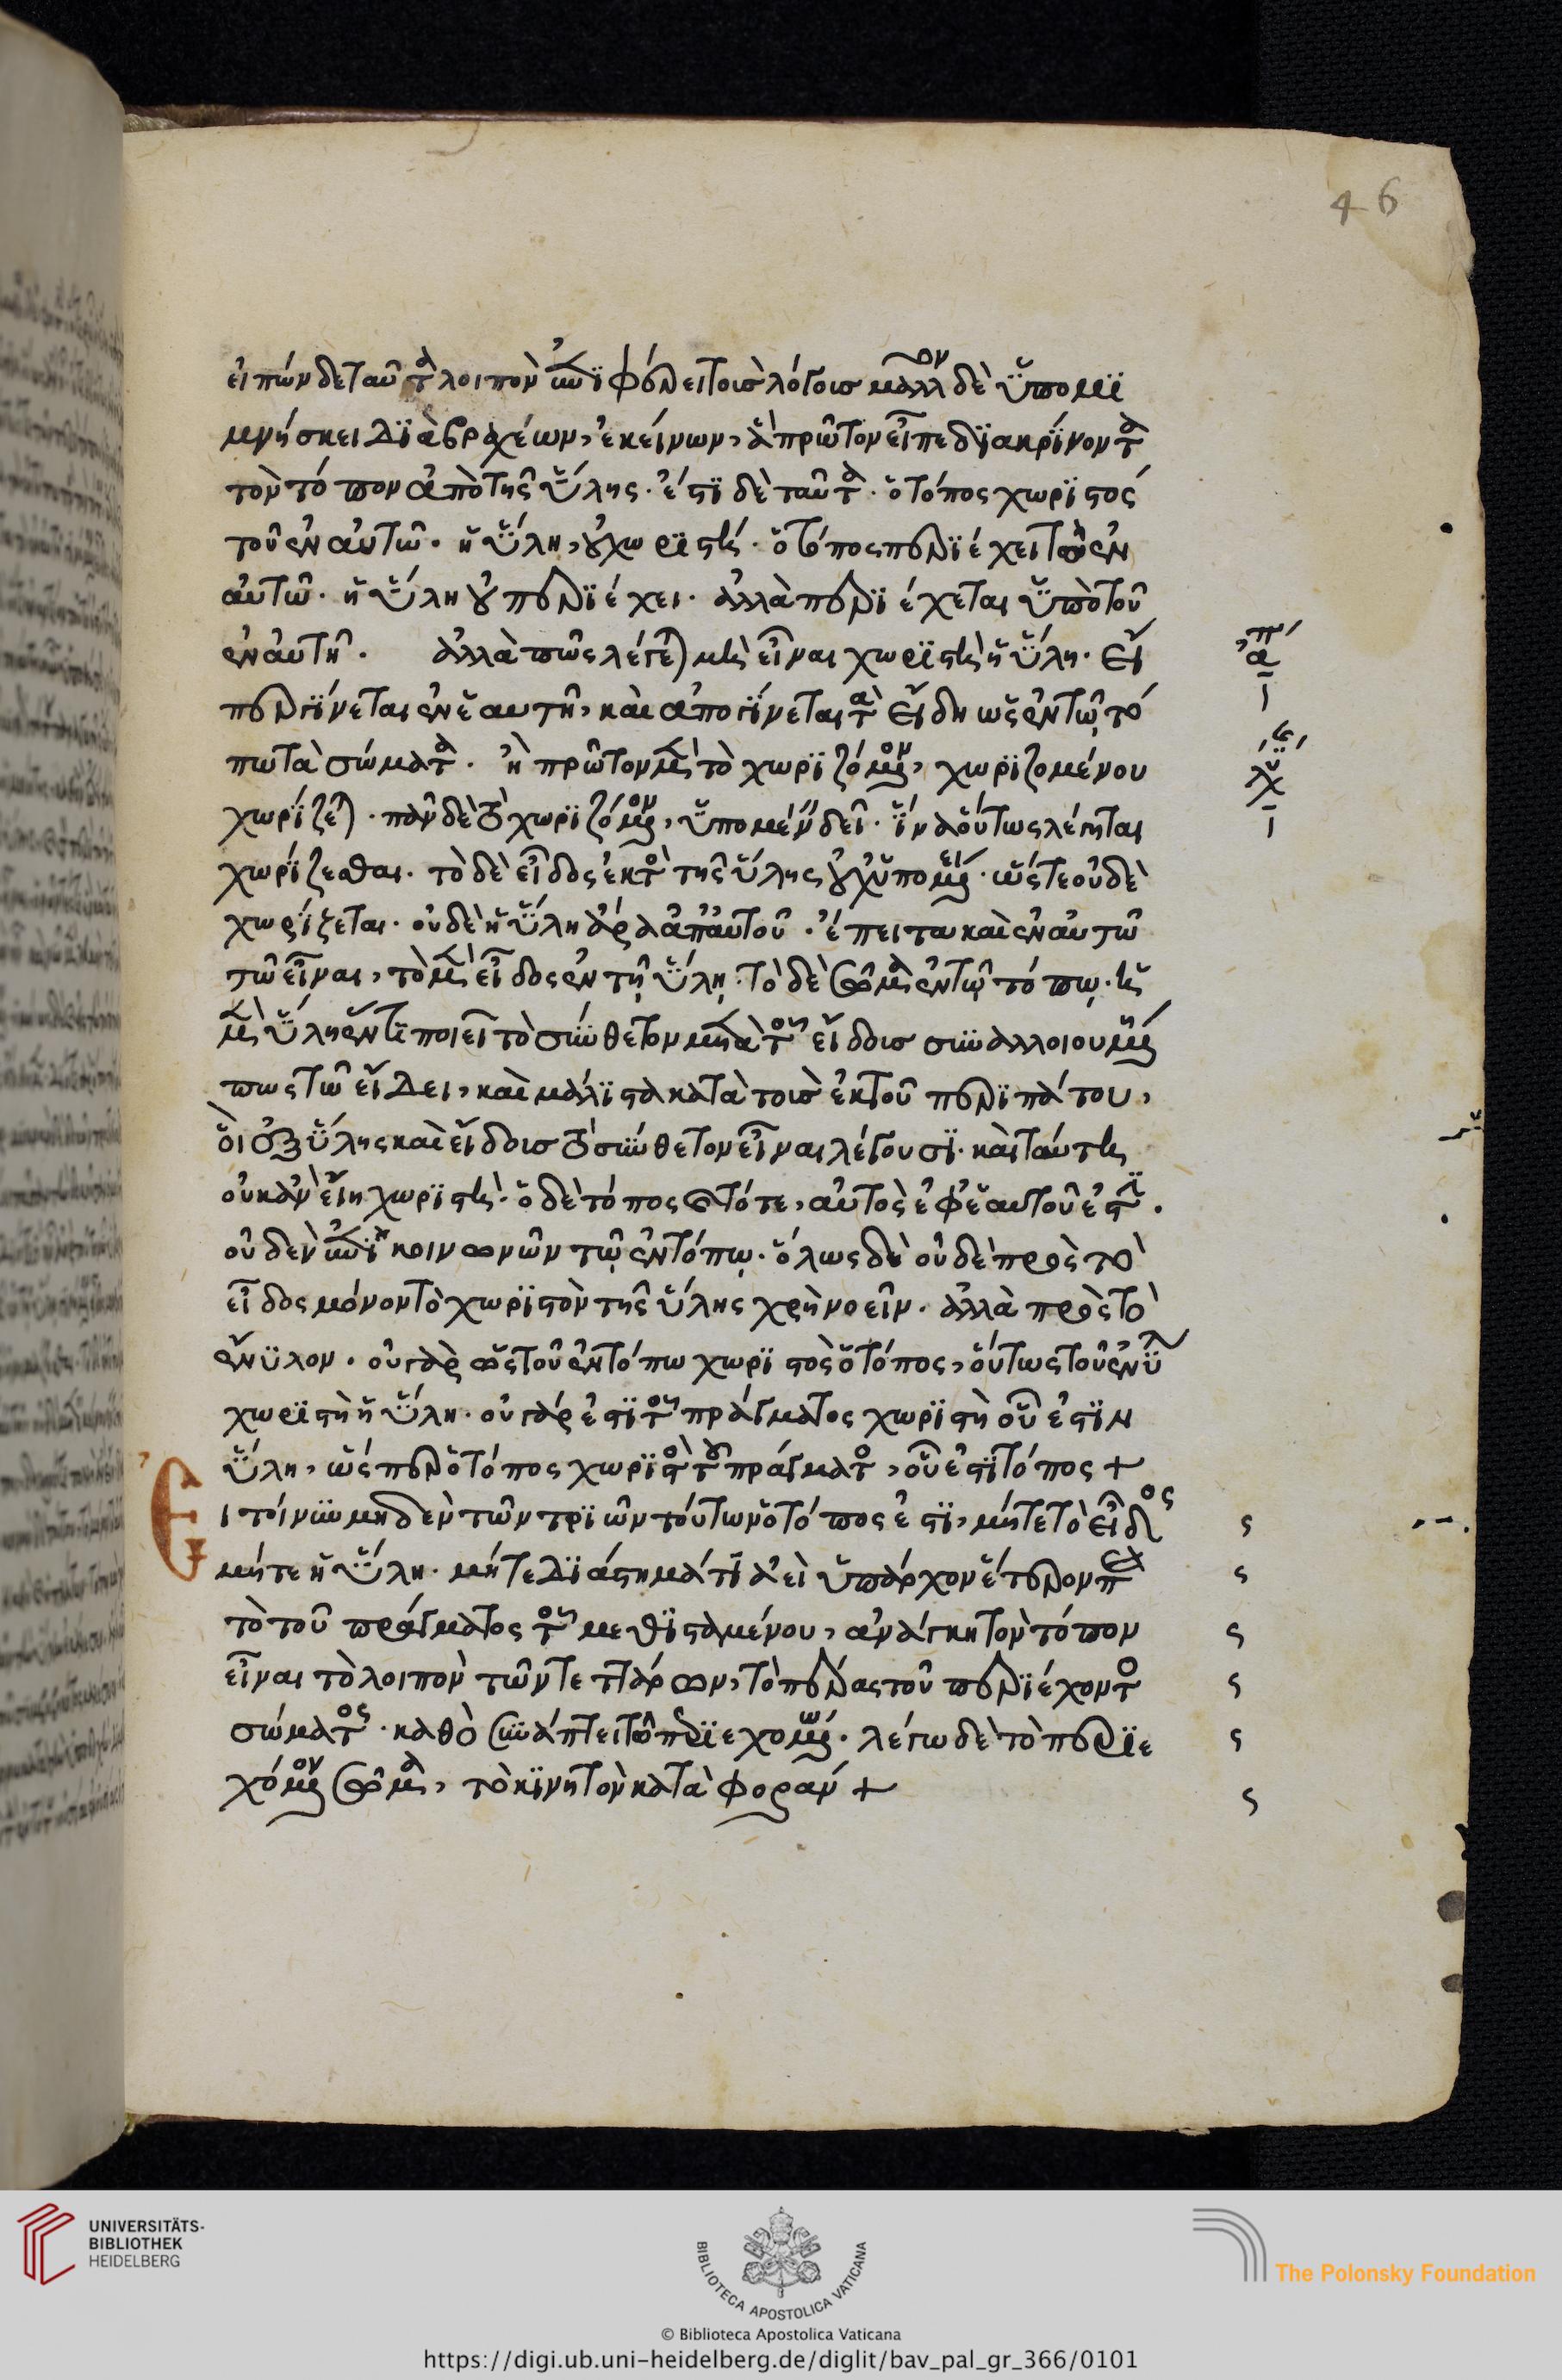 46
εἰπὼν δὲ ταῦτα λοιπὸν συνείρει τοῖς λόγοις μᾶλλον δὲ ὑπομι
μνήσκει διὰ βραχέων ἐκείνων, ἃ πρῶτον εἶπε διακρίνοντα
τὸν τόπον ἀπὸ τῆς ὕλης· ἔστι δὲ ταῦτα· ὁ τόπος χωριστός
τοῦ ἐν αὐτῶ· ἡ ὕλη, οὐ χωριστή· ὁ τόπος περιέχει τὸ ἐν
αὐτῶ· ἡ ὕλη οὐ περιέχει· ἀλλὰ περιέχεται ὑπὸ τοῦ
ἐν αὐτῆ· ἀλλὰ πῶς λέγεται μὴ εἶναι χωριστὴ ἡ ὕλη· εἰ
περιγίνεται ἐν ἑαυτῆ, καὶ ἀπογίνεται τὰ εἴδη ὡς ἐν τῶ τό
πω τὰ σώματα· ἢ πρῶτον μὲν τὸ χωριζόμενον, χωριζομένου
χωρίζεται· πᾶν δὲ τὸ χωριζόμενον, ὑπομένειν δεῖ· ἵνα οὕτως λέγηται
χωρίζεσθαι· τὸ δὲ εἶδος ἐκτὸς τῆς ὕλης οὐχ ὑπομένει· ὥστε οὐδὲ
χωρίζεται· οὐδὲ ἡ ὕλη ἄρα ἀπ' αὐτοῦ· ἔπειτα καὶ ἐν αὐτῶ
τῶ εἶναι, τὸ μὲν εἶδος ἐν τῆ ὕλη· τὸ δὲ σῶμα ἐν τῶ τόπω· ἡ
μὲν ὕλη ἕν τι ποιεῖ τὸ σύνθετον μετὰ τοῦ εἴδους συναλλοιουμένη
πως τῶ εἴδει, καὶ μάλιστα κατὰ τοὺς ἐκ τοῦ περιπάτου,
οἳ ἐξ ὕλης καὶ εἴδους τὸ σύνθετον εἶναι λέγουσι· καὶ ταύτη
οὐκ ἂν εἴη χωριστή· ὁ δὲ τόπος ἕτότε, αὐτὸς ἐφ' ἑαυτοῦ ἐστι·
οὐδὲν συγκοινωνῶν τῶ ἐν τόπω· ὅλως δὲ οὐδὲ πρὸς τὸ
εἶδος μόνον τὸ χωριστὸν τῆς ὕλης χρὴ νοεῖν· ἀλλὰ πρὸς τὸ
ἔνυλον· οὐ γὰρ ὡς τοῦ ἐν τόπω χωριστὸς ὁ τόπος, οὕτως τοῦ ἐνύλου
χωριστὴ ἡ ὕλη· οὐ γάρ ἐστι τοῦ πράγματος χωριστὴ οὗ ἐστιν
ὕλη, ὥσπερ ὁ τόπος χωριστὸς τοῦ πράγματος, οὗ ἐστι τόπος +
Ε
ι τοίνυν μηδὲν τῶν τριῶν τούτων ὁ τόπος ἐστι, μήτε τὸ εἶδος
μήτε ἡ ὕλη· μήτε διάστημά τι ἀεὶ ὑπάρχον ἕτερον παρὰ
τὸ τοῦ πράγματος τοῦ μεθισταμένου, ἀνάγκη τὸν τόπον
εἶναι τὸ λοιπὸν τῶν τεττάρων, τὸ πέρας τοῦ περιέχοντος
σώματος· καθὸ συνάπτει τῶ περιεχομένω· λέγω δὲ τὸ περιε
χόμενον σῶμα, τὸ κινητὸν κατὰ φοράν +
UNIVERSITÄTS-
BIBLIOTHEK
HEIDELBERG
BIBLIOTECA APOSTOLICA VATICANA
The Polonsky Foundation
© Biblioteca Apostolica Vaticana
https://digi.ub.uni-heidelberg.de/diglit/bav_pal_gr_366/0101